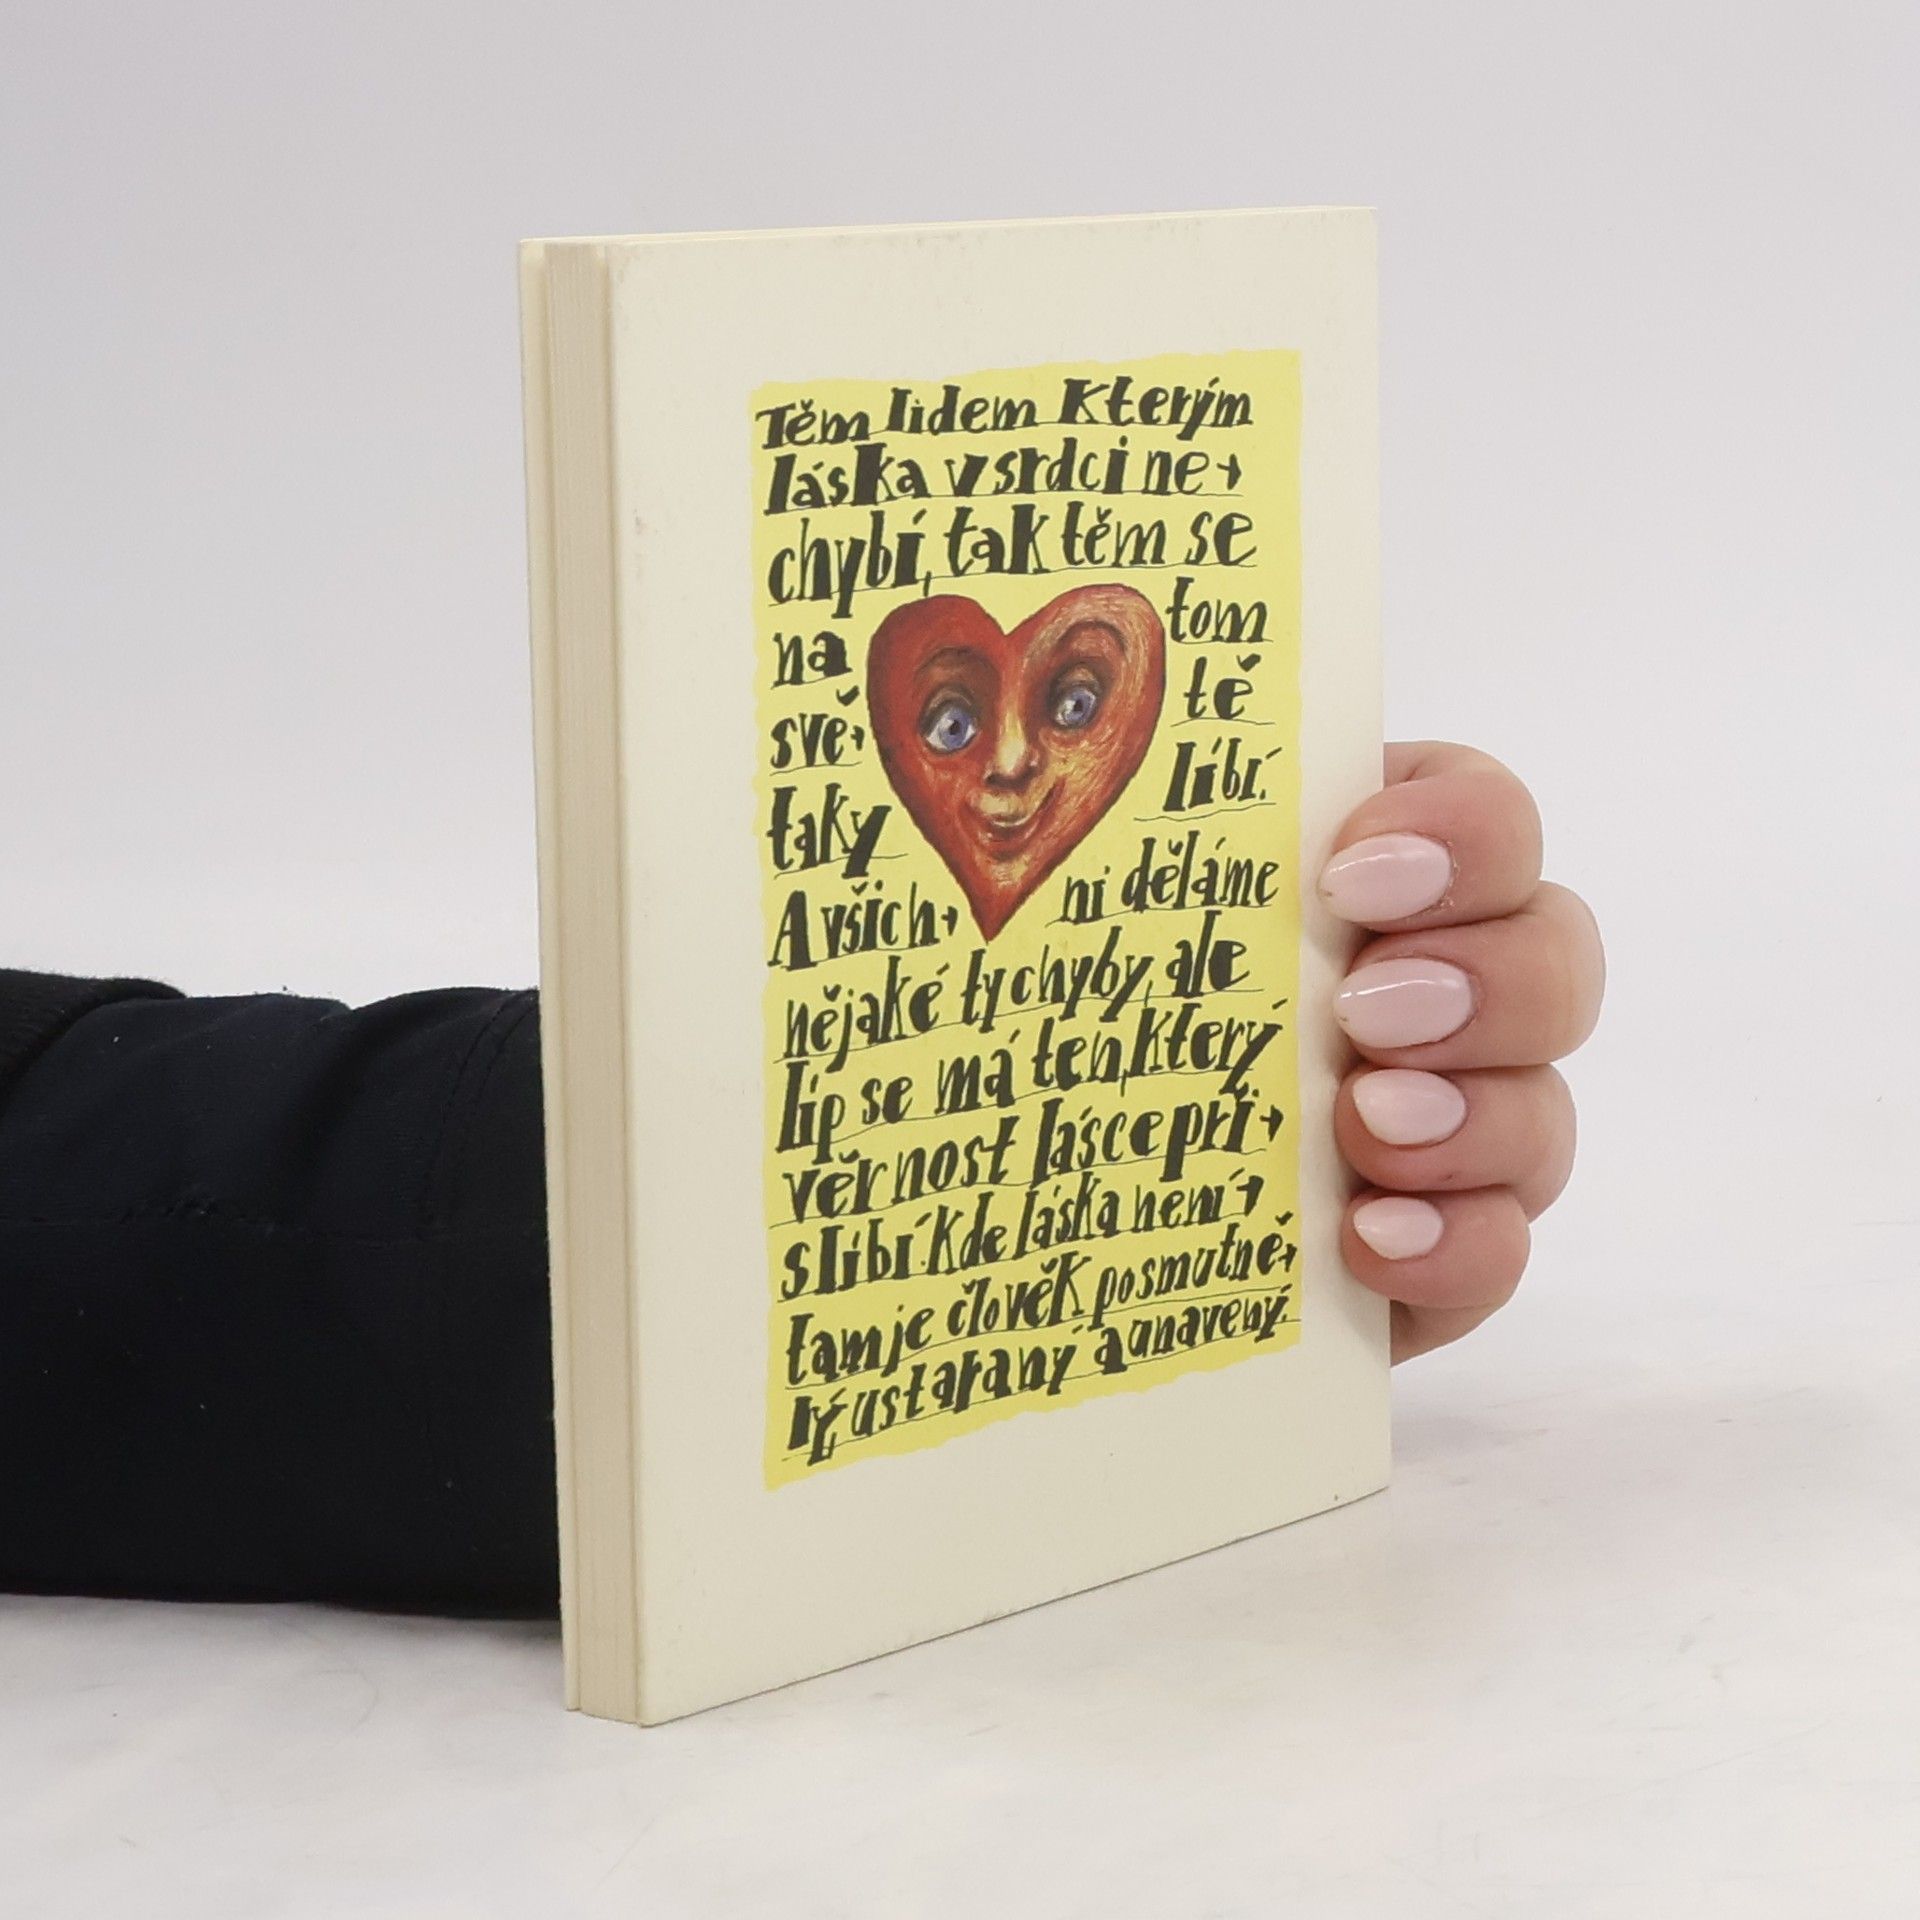 Těm lidem kterým
láska v srdci ne-
chybí, tak těm se
na tom
svě- tě
taky líbí.
A všich- ni děláme
nějaké ty chyby, ale
líp se má ten, který
věrnost lásce při-
slíbí. Kde láska není,
tam je člověk posmutně-
lý, ustaraný a unavený.